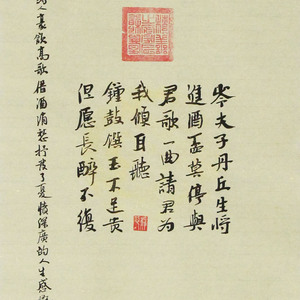 岑夫子丹丘生将
進酒盃莫停與
君歌一曲請君为
我傾耳聽
鐘鼓饌玉不足贵
但愿長醉不復
人豪飲高歌借酒消愁抒发了憂憤深廣的人生感慨